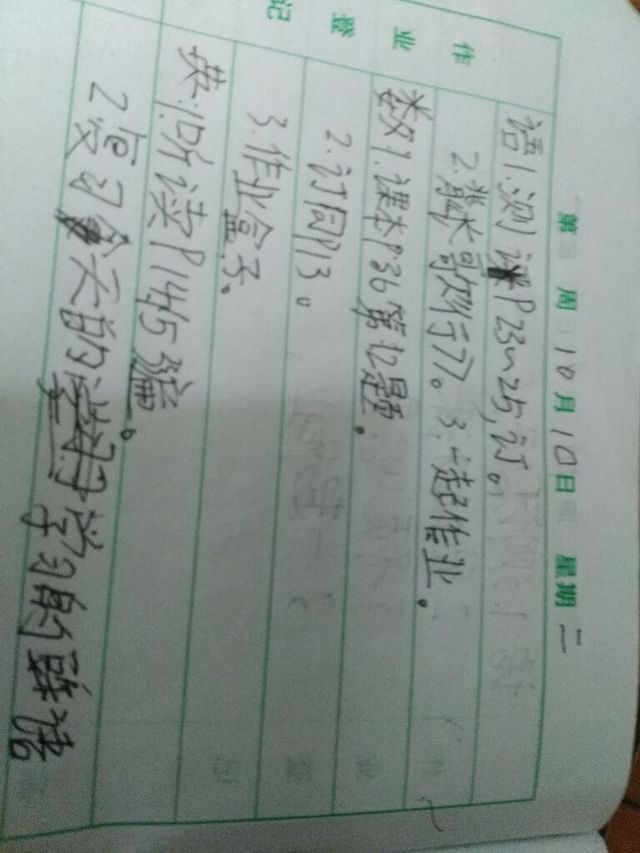 第 周 10月10日 星期二
作业登记
语1.测 P23~25,订。
2. 哥 行》。3.一起作业。
数1.课本P36第12题。
2.订同P13。
3.作业盒子。
英:1.听读P145编。
2.复习今天的 学习的 语